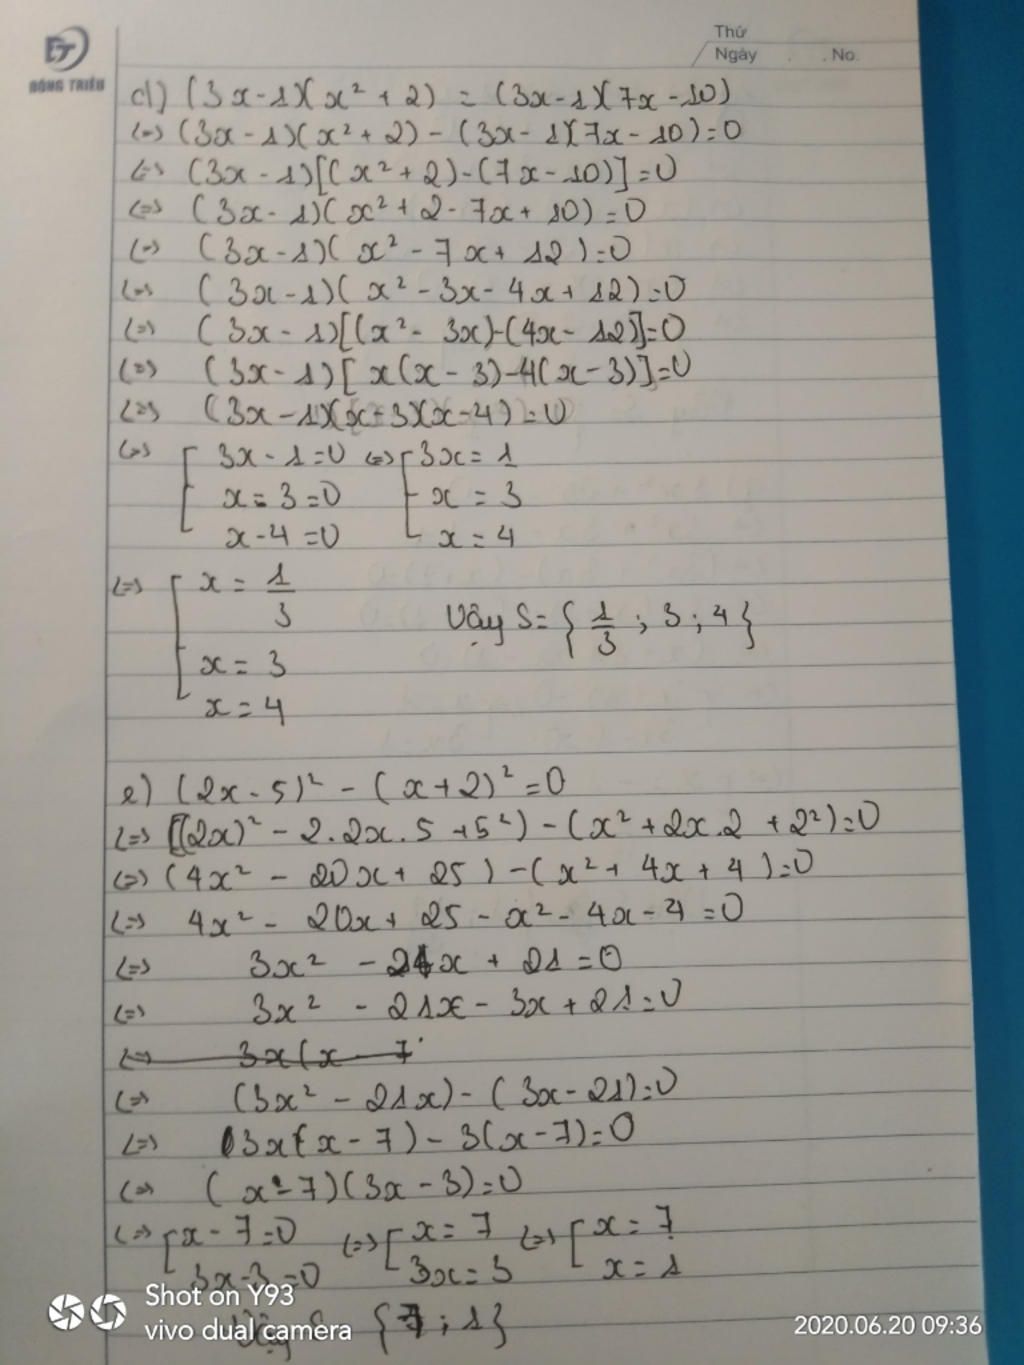 ĐT
ĐÔNG TRIỀU
Thứ
Ngày . . No.
d) (3x-1)(x² + 2) = (3x-1)(7x-10)
<=> (3x-1)(x²+2) - (3x-1)(7x-10)=0
<=> (3x-1)[(x²+2)-(7x-10)]=0
<=> (3x-1)(x²+2-7x+10)=0
<=> (3x-1)(x²-7x+12)=0
<=> (3x-1)(x²-3x-4x+12)=0
<=> (3x-1)[(x²-3x)-(4x-12)]=0
<=> (3x-1)[x(x-3)-4(x-3)]=0
<=> (3x-1)(x-3)(x-4)=0
<=> [ 3x-1=0 <=> [ 3x=1
x=3=0 x=3
x-4=0 x=4
<=> [ x = 1/3 Vậy S={1/3; 3; 4}
x=3
x=4
e) (2x-5)² - (x+2)²=0
<=> ((2x)² - 2.2x.5 +5²) - (x²+2x.2+2²)=0
<=> (4x² - 20x + 25) - (x²+ 4x + 4)=0
<=> 4x² - 20x + 25 - x² - 4x - 4 =0
<=> 3x² - 24x + 21 =0
<=> 3x² - 21x - 3x + 21=0
<=> 3x(x - 7
<=> (3x² - 21x) - (3x-21)=0
<=> 3x(x-7) - 3(x-7)=0
<=> (x-7)(3x-3)=0
<=> [ x-7=0 <=> [ x=7 <=> [ x=7
3x-3=0 3x=3 x=1
Vậy S {7; 1}
Shot on Y93
vivo dual camera
2020.06.20 09:36